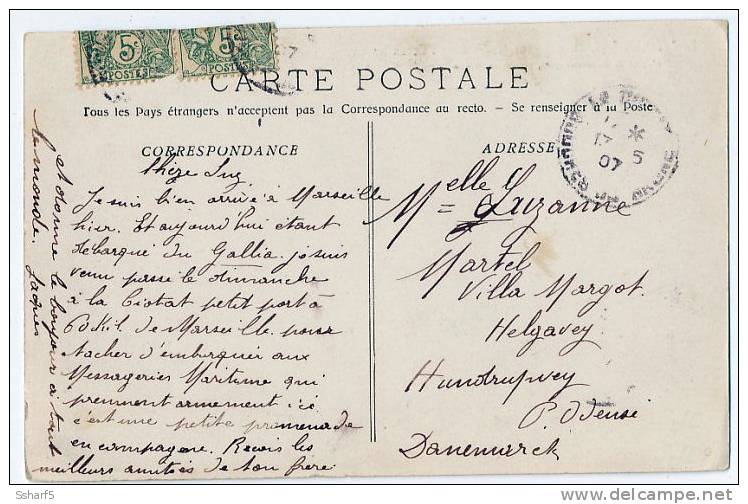 5c
POSTES
5c
POSTES
CARTE POSTALE
Tous les Pays étrangers n'acceptent pas la Correspondance au recto. - Se renseigner à la Poste
CORRESPONDANCE
ADRESSE
5
07
Chère Suz
Je suis bien arrivé à Marseille
hier. Et aujourd'hui étant
débarqué du Gallia, je suis
venu passé le dimanche
à la Ciotat petit port à
Kil. de Marseille pour
tacher d'embarquer aux
Messageries Maritime qui
prennent armement ici
c'est une petite promenade
en campagne. Recois les
meilleurs amitiés de ton frère
et donne le bonjour à tout
le monde. Jacques
Melle Suzanne
Martel
Villa Margot.
Helgavey
Hundrupvey
P. Odensé
Danemarck
Ssharf5
www.delcampe.net